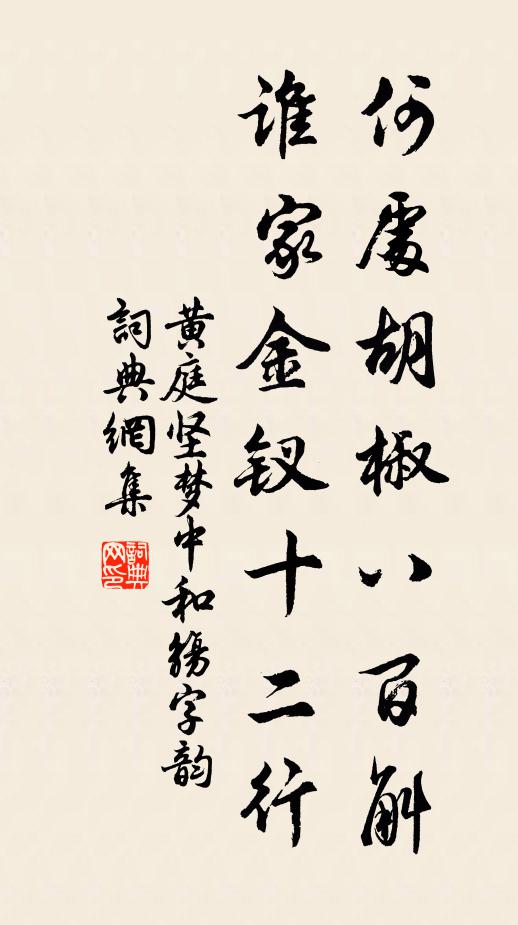 何處胡椒八百斛
谁家金钗十二行
黄庭坚梦中和觴字韵
詞典網集
詞典网印